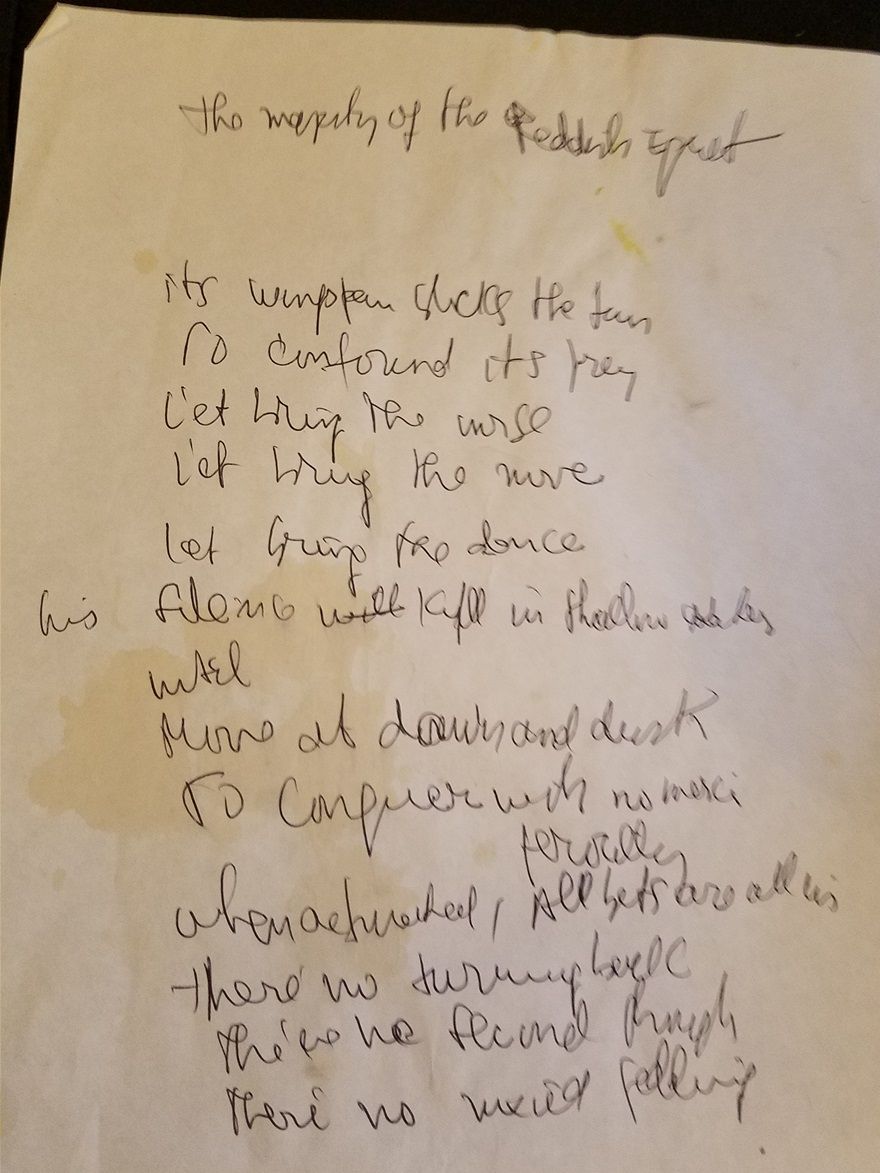 the majesty of the Reddish Egret
its wingspan blocks the sun
To confound its prey
Let bring the noise
Let bring the move
let bring the dance
his silence will kill in shallow
until
Move at dawn and dusk
To Conquer with no merci
when activated, All bets are all in
there no turning back
there no second though
there no mixed felling